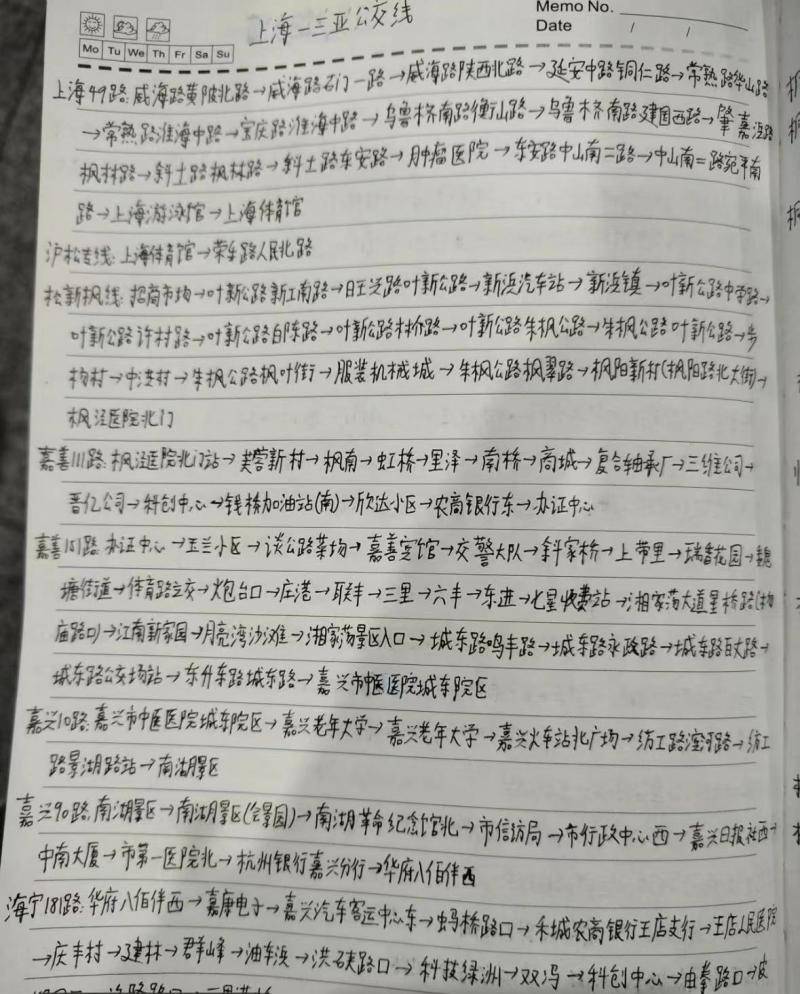 Memo No.
Mo Tu We Th Fr Sa Su
Date / /
上海-三亚公交线
上海49路:威海路黄陂北路→威海路石门一路→威海路陕西北路→延安中路铜仁路→常熟路华山路
→常熟路淮海中路→宝庆路淮海中路→乌鲁木齐南路衡山路→乌鲁木齐南路建国西路→肇嘉浜路
枫林路→斜土路枫林路→斜土路东安路→肿瘤医院→东安路中山南二路→中山南二路宛平南
路→上海游泳馆→上海体育馆
沪松专线:上海体育馆→荣乐路人民北路
松新枫线:招商市场→叶新公路新江南路→叶新公路→新浜汽车站→新浜镇→叶新公路中学路→
叶新公路许村路→叶新公路白陈路→叶新公路林介路→叶新公路朱枫公路→朱枫公路叶新公路→步
村→中洪村→朱枫公路枫叶街→服装机械城→朱枫公路枫翠路→枫阳新村(枫阳路北大街)→
枫泾医院北门
嘉善111路:枫泾医院北门站→芙蓉新村→枫南→虹桥→里泽→南桥→商城→复合轴承厂→三维公司→
晋亿公司→科创中心→钱桥加油站(南)→欣达小区→农商银行东→办证中心
嘉善151路:办证中心→玉兰小区→谈公路菜场→嘉善宾馆→交警大队→斜家桥→上带里→瑞香花园→魏
塘街道→体育路立交→炮台口→庄港→联丰→三里→六丰→东进→七星收费站→湘家荡大道星桥路(
庙路口)→江南新家园→月亮湾沙滩→湘家荡景区入口→城东路鸣丰路→城东路永政路→城东路百丈路→
城东路公交场站→东升东路城东路→嘉兴市中医医院城东院区
嘉兴10路:嘉兴市中医医院城东院区→嘉兴老年大学→嘉兴老年大学→嘉兴火车站北广场→纺工路路→纺工
路景湖路站→南湖景区
嘉兴90路:南湖景区→南湖景区(会景园)→南湖革命纪念馆北→市信访局→市行政中心西→嘉兴日报社西→
中南大厦→市第一医院北→杭州银行嘉兴分行→华府八佰伴西
海宁181路:华府八佰伴西→嘉康电子→嘉兴汽车客运中心东→蚂桥路口→禾城农商银行王店支行→王店人民医院
→庆丰村→建林→群峰→油车浜→洪硖路口→科技绿洲→双冯→科创中心→由拳路口→皮